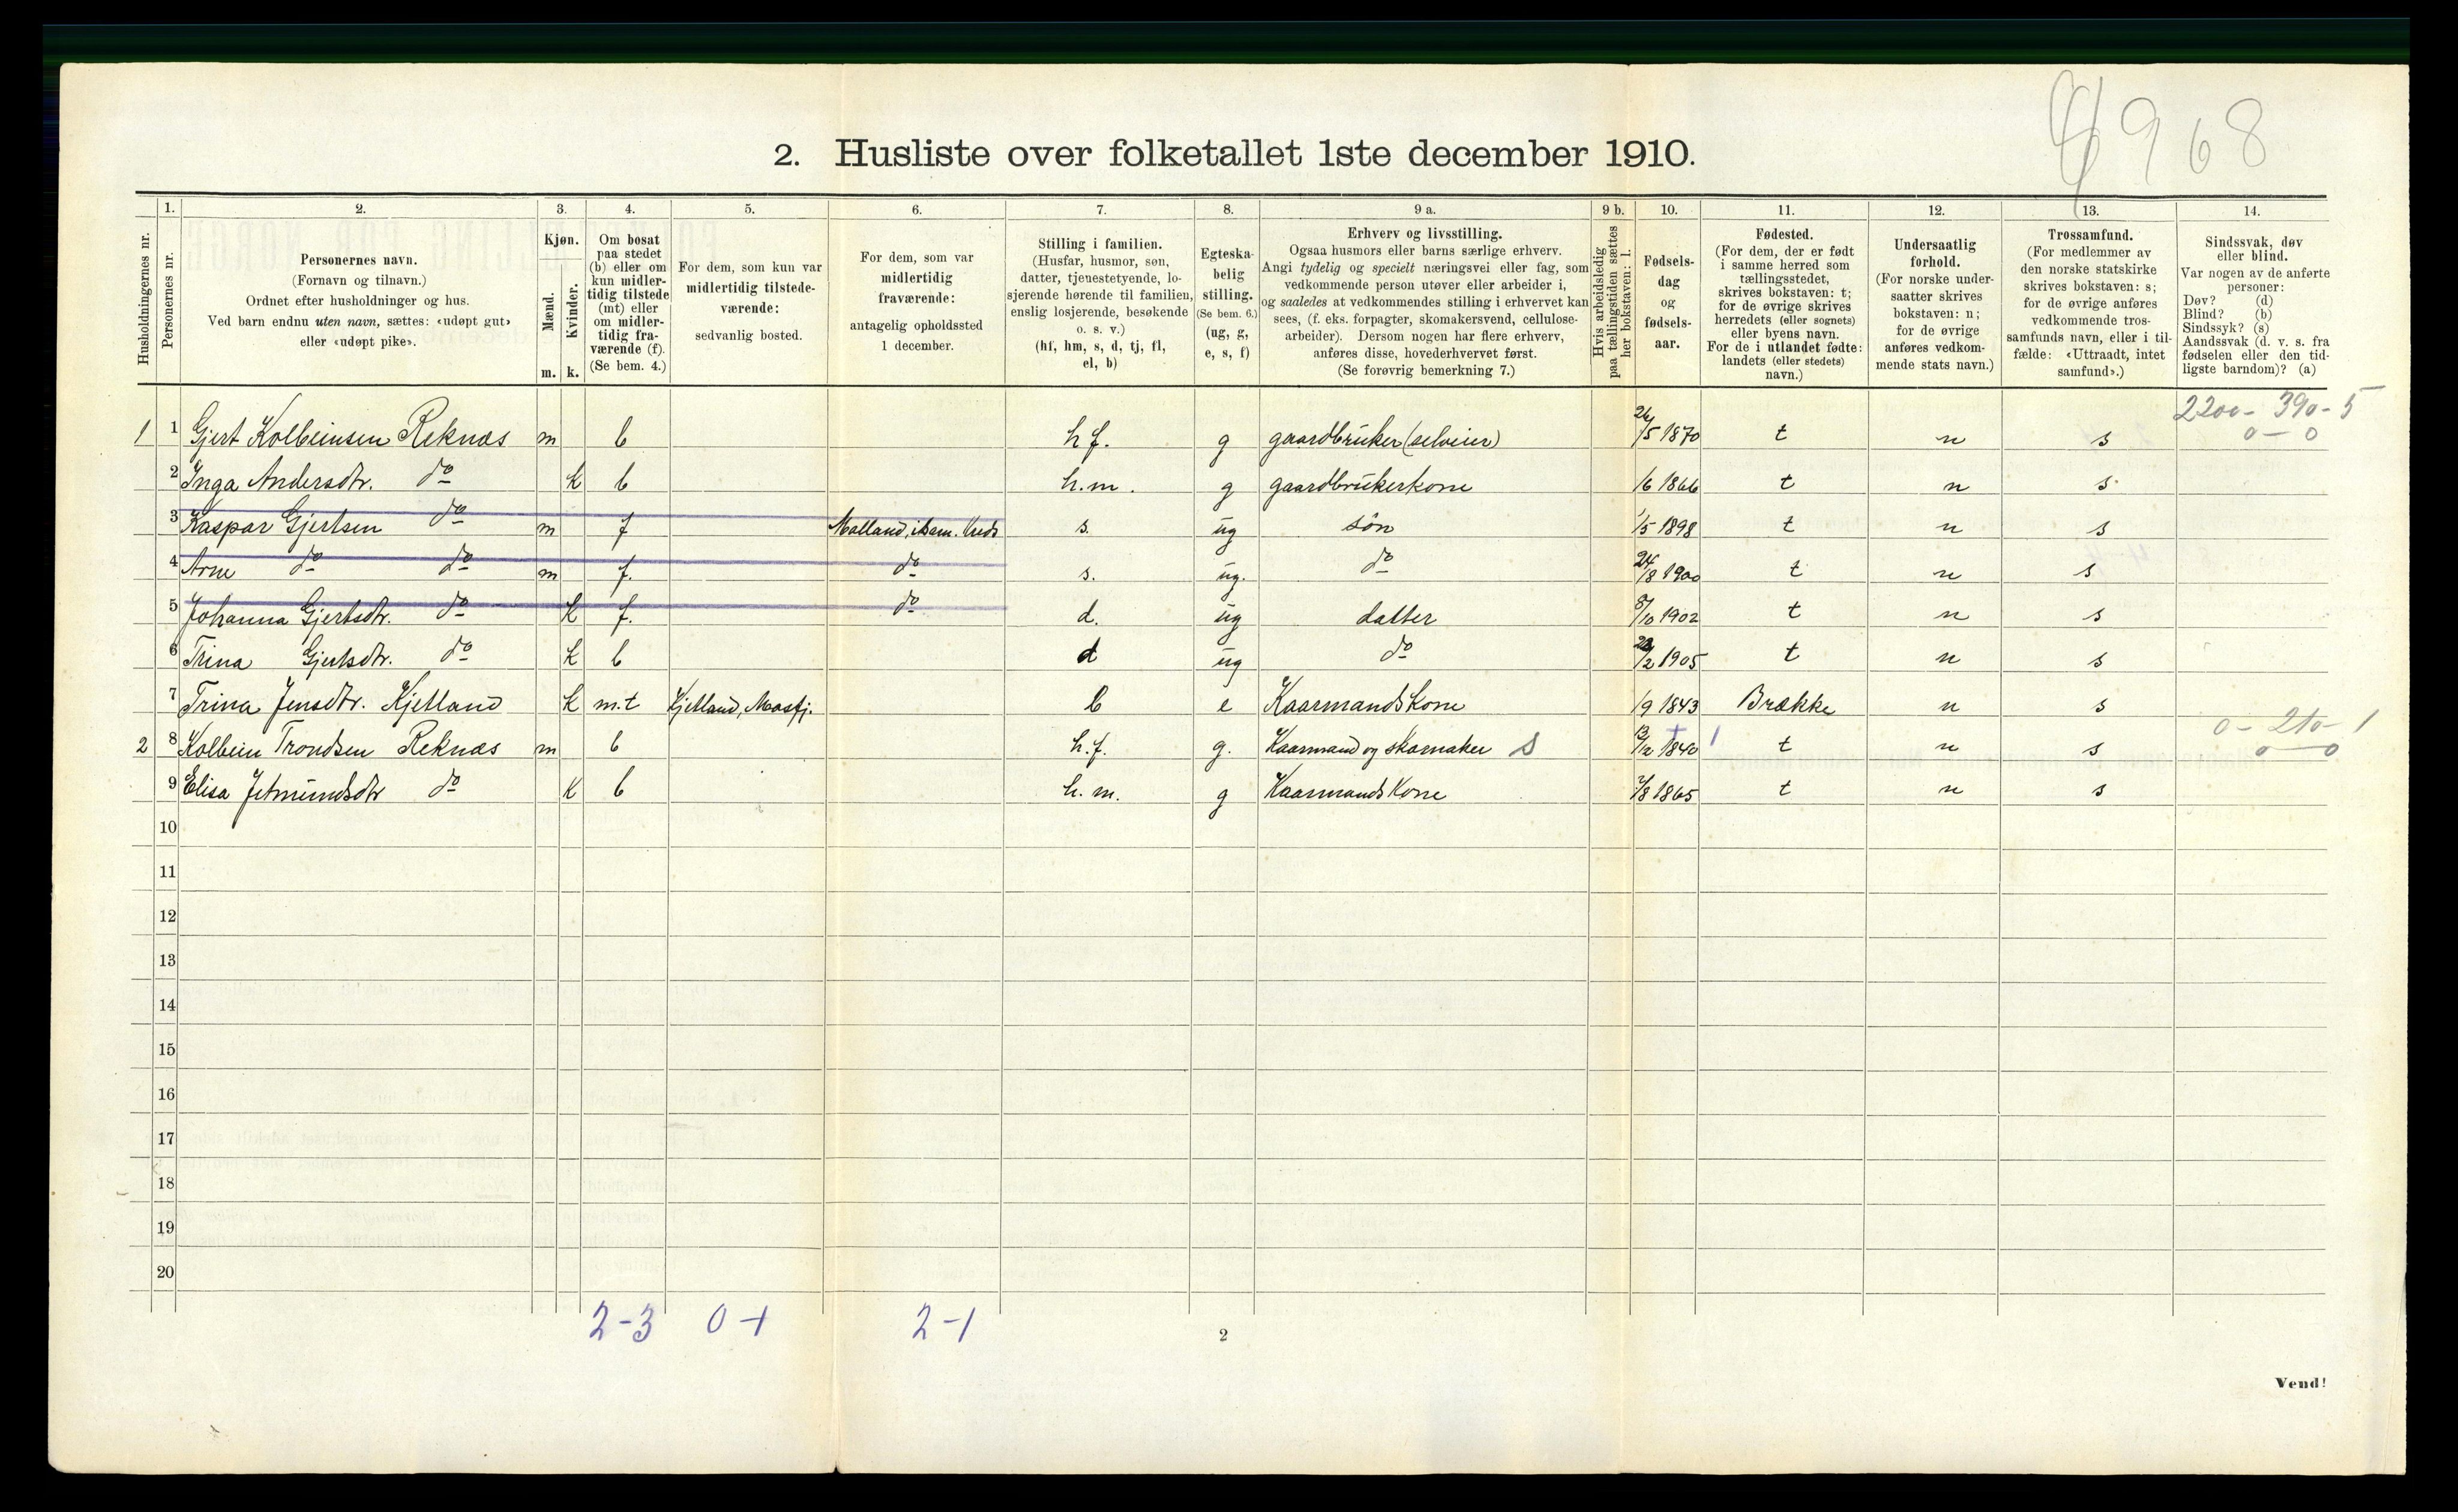 968
2. Husliste over folketallet 1ste december 1910.
Husholdningernes nr.
1.
Personernes nr.
2.
Personernes navn.
(Fornavn og tilnavn.)
Ordnet efter husholdninger og hus.
Ved barn endnu uten navn, sættes: «udøpt gut»
eller «udøpt pike».
3.
Kjøn.
Mænd.
Kvinder.
m. k.
4.
Om bosat
paa stedet
(b) eller om
kun midler-
tidig tilstede
(mt) eller
om midler-
tidig fra-
værende (f).
(Se bem. 4.)
5.
For dem, som kun var
midlertidig tilstede-
værende:
sedvanlig bosted.
6.
For dem, som var
midlertidig
fraværende:
antagelig opholdssted
1 december.
7.
Stilling i familien.
(Husfar, husmor, søn,
datter, tjenestetyende, lo-
sjerende hørende til familien,
enslig losjerende, besøkende
o. s. v.)
(hf, hm, s, d, tj, fl,
el, b)
8.
Egteska-
belig
stilling.
(Se bem. 6.)
(ug, g,
e, s, f)
9 a.
Erhverv og livsstilling.
Ogsaa husmors eller barns særlige erhverv.
Angi tydelig og specielt næringsvei eller fag, som
vedkommende person utøver eller arbeider i,
og saaledes at vedkommendes stilling i erhvervet kan
sees, (f. eks. forpagter, skomakersvend, cellulose-
arbeider). Dersom nogen har flere erhverv,
anføres disse, hovederhvervet først.
(Se forøvrig bemerkning 7.)
9 b.
Hvis arbeidsledig
paa tællingstiden sættes
her bokstaven: l.
10.
Fødsels-
dag
og
fødsels-
aar.
11.
Fødested.
(For dem, der er født
i samme herred som
tællingsstedet,
skrives bokstaven: t;
for de øvrige skrives
herredets (eller sognets)
eller byens navn.
For de i utlandet fødte:
landets (eller stedets)
navn.)
12.
Undersaatlig
forhold.
(For norske under-
saatter skrives
bokstaven: n;
for de øvrige
anføres vedkom-
mende stats navn.)
13.
Trossamfund.
(For medlemmer av
den norske statskirke
skrives bokstaven: s;
for de øvrige anføres
vedkommende tros-
samfunds navn, eller i til-
fælde: «Uttraadt, intet
samfund».)
14.
Sindssvak, døv
eller blind.
Var nogen av de anførte
personer:
Døv? (d)
Blind? (b)
Sindssyk? (s)
Aandssvak (d. v. s. fra
fødselen eller den tid-
ligste barndom)? (a)
2200 - 390 - 5
0 - 0
1 1 Gjert Kolbeinsen Reknæs m b h f. g gaardbruker (selveier) 26/5 1870 t n s
2 Inga Andersdtr. do k b h.m. g gaardbrukerkone /6 1866 t n s
3 Kaspar Gjertsen do m f s. ug søn 1/5 1898 t n s
4 Arne do do m f. do s. ug. do 24/8 1900 t n s
5 Johanna Gjertsdtr. do k f. do d. ug datter 8/10 1902 t n s
6 Trina Gjertsdtr. do k b d ug do /2 1905 t n s
7 Trina Jensdtr. Kjetland k m.t Kjetland, Masfj. b e Kaarmandskone /9 1843 Brække n s
0 - 210 - 1
0 - 0
2 8 Kolbein Trondsen Reknæs m b h.f. g. Kaarmand og skomaker S 13/12 1840 t n s
9 Elisa Jetmundsdtr do k b h.m. g Kaarmandskone 7/8 1865 t n s
10
11
12
13
14
15
16
17
18
19
20
2-3 0-1 2-1
2
Vend!